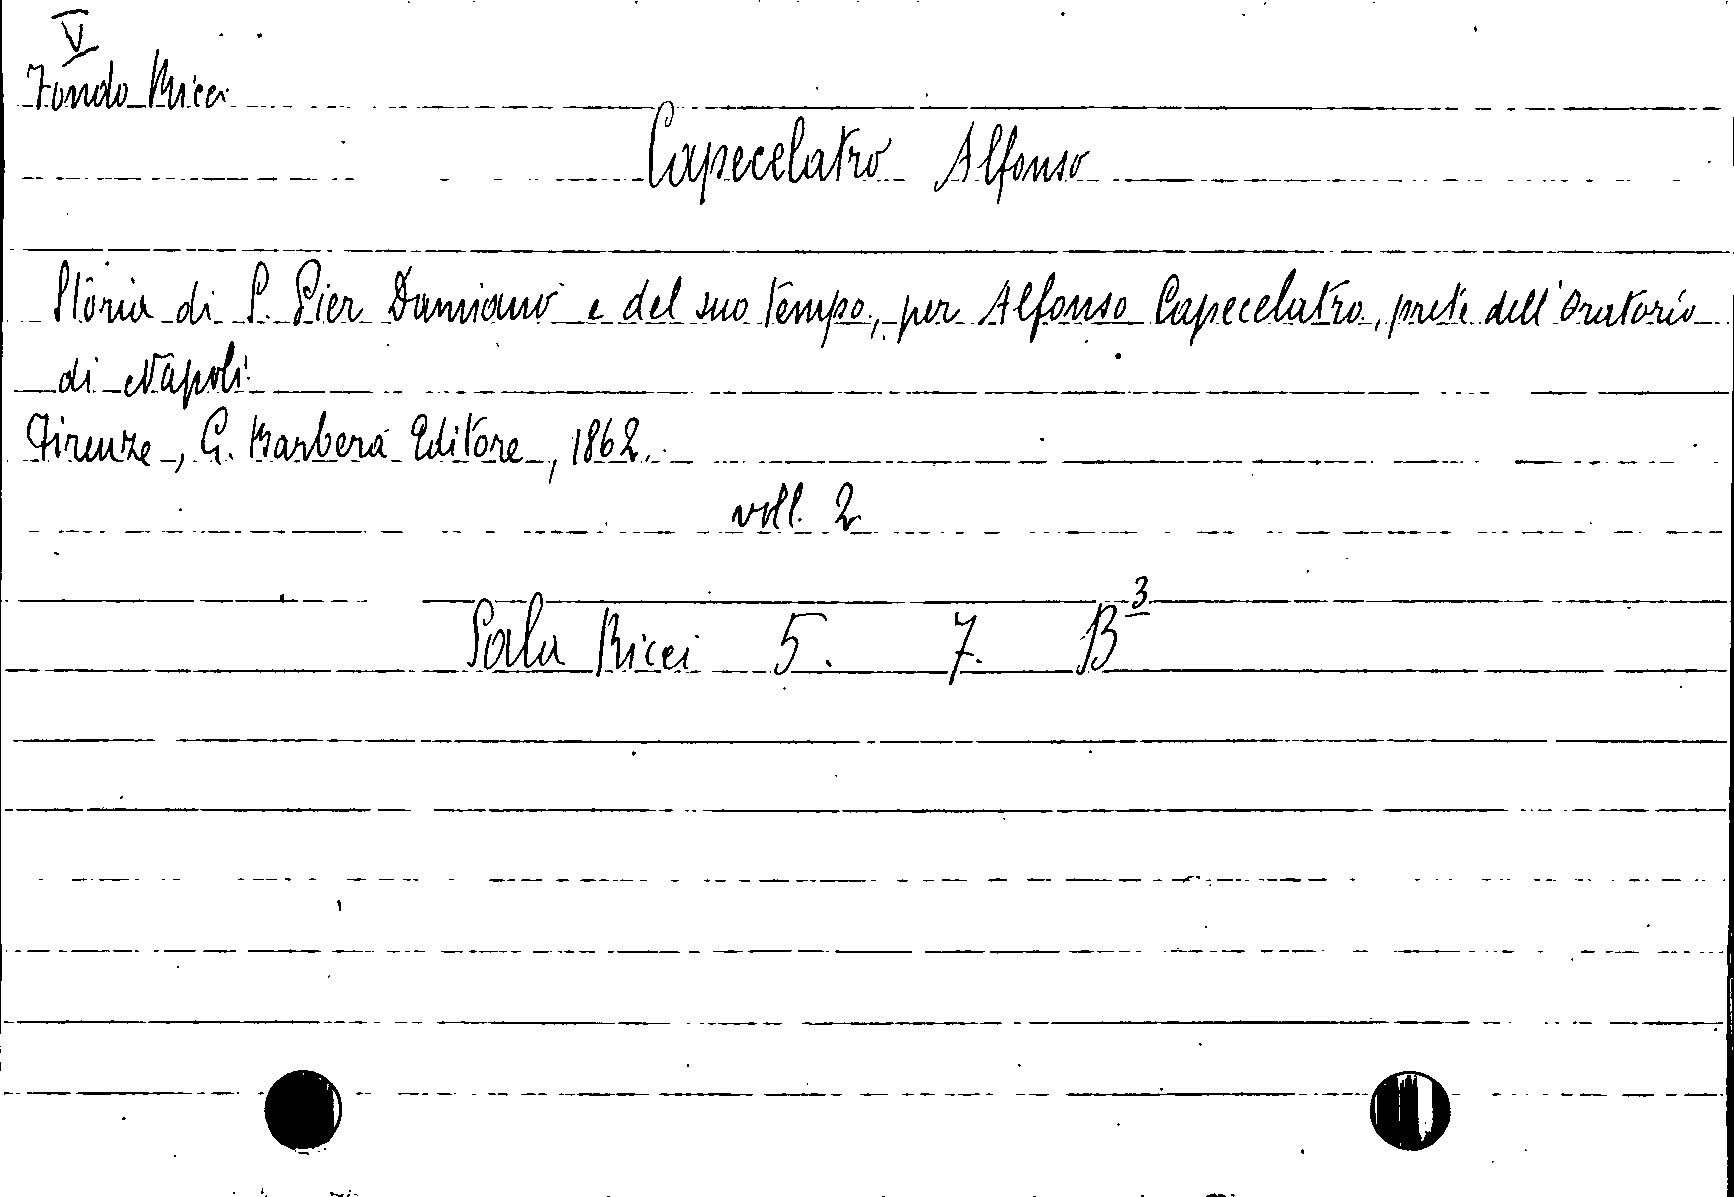 V
Fondo Ricci
Capecelatro Alfonso
Storia di S. Pier Damiano e del suo tempo, per Alfonso Capecelatro, prete dell'Oratorio
di Napoli.
Firenze, G. Barbera Editore, 1862.
voll. 2
Sala Ricci 5. 7. B³